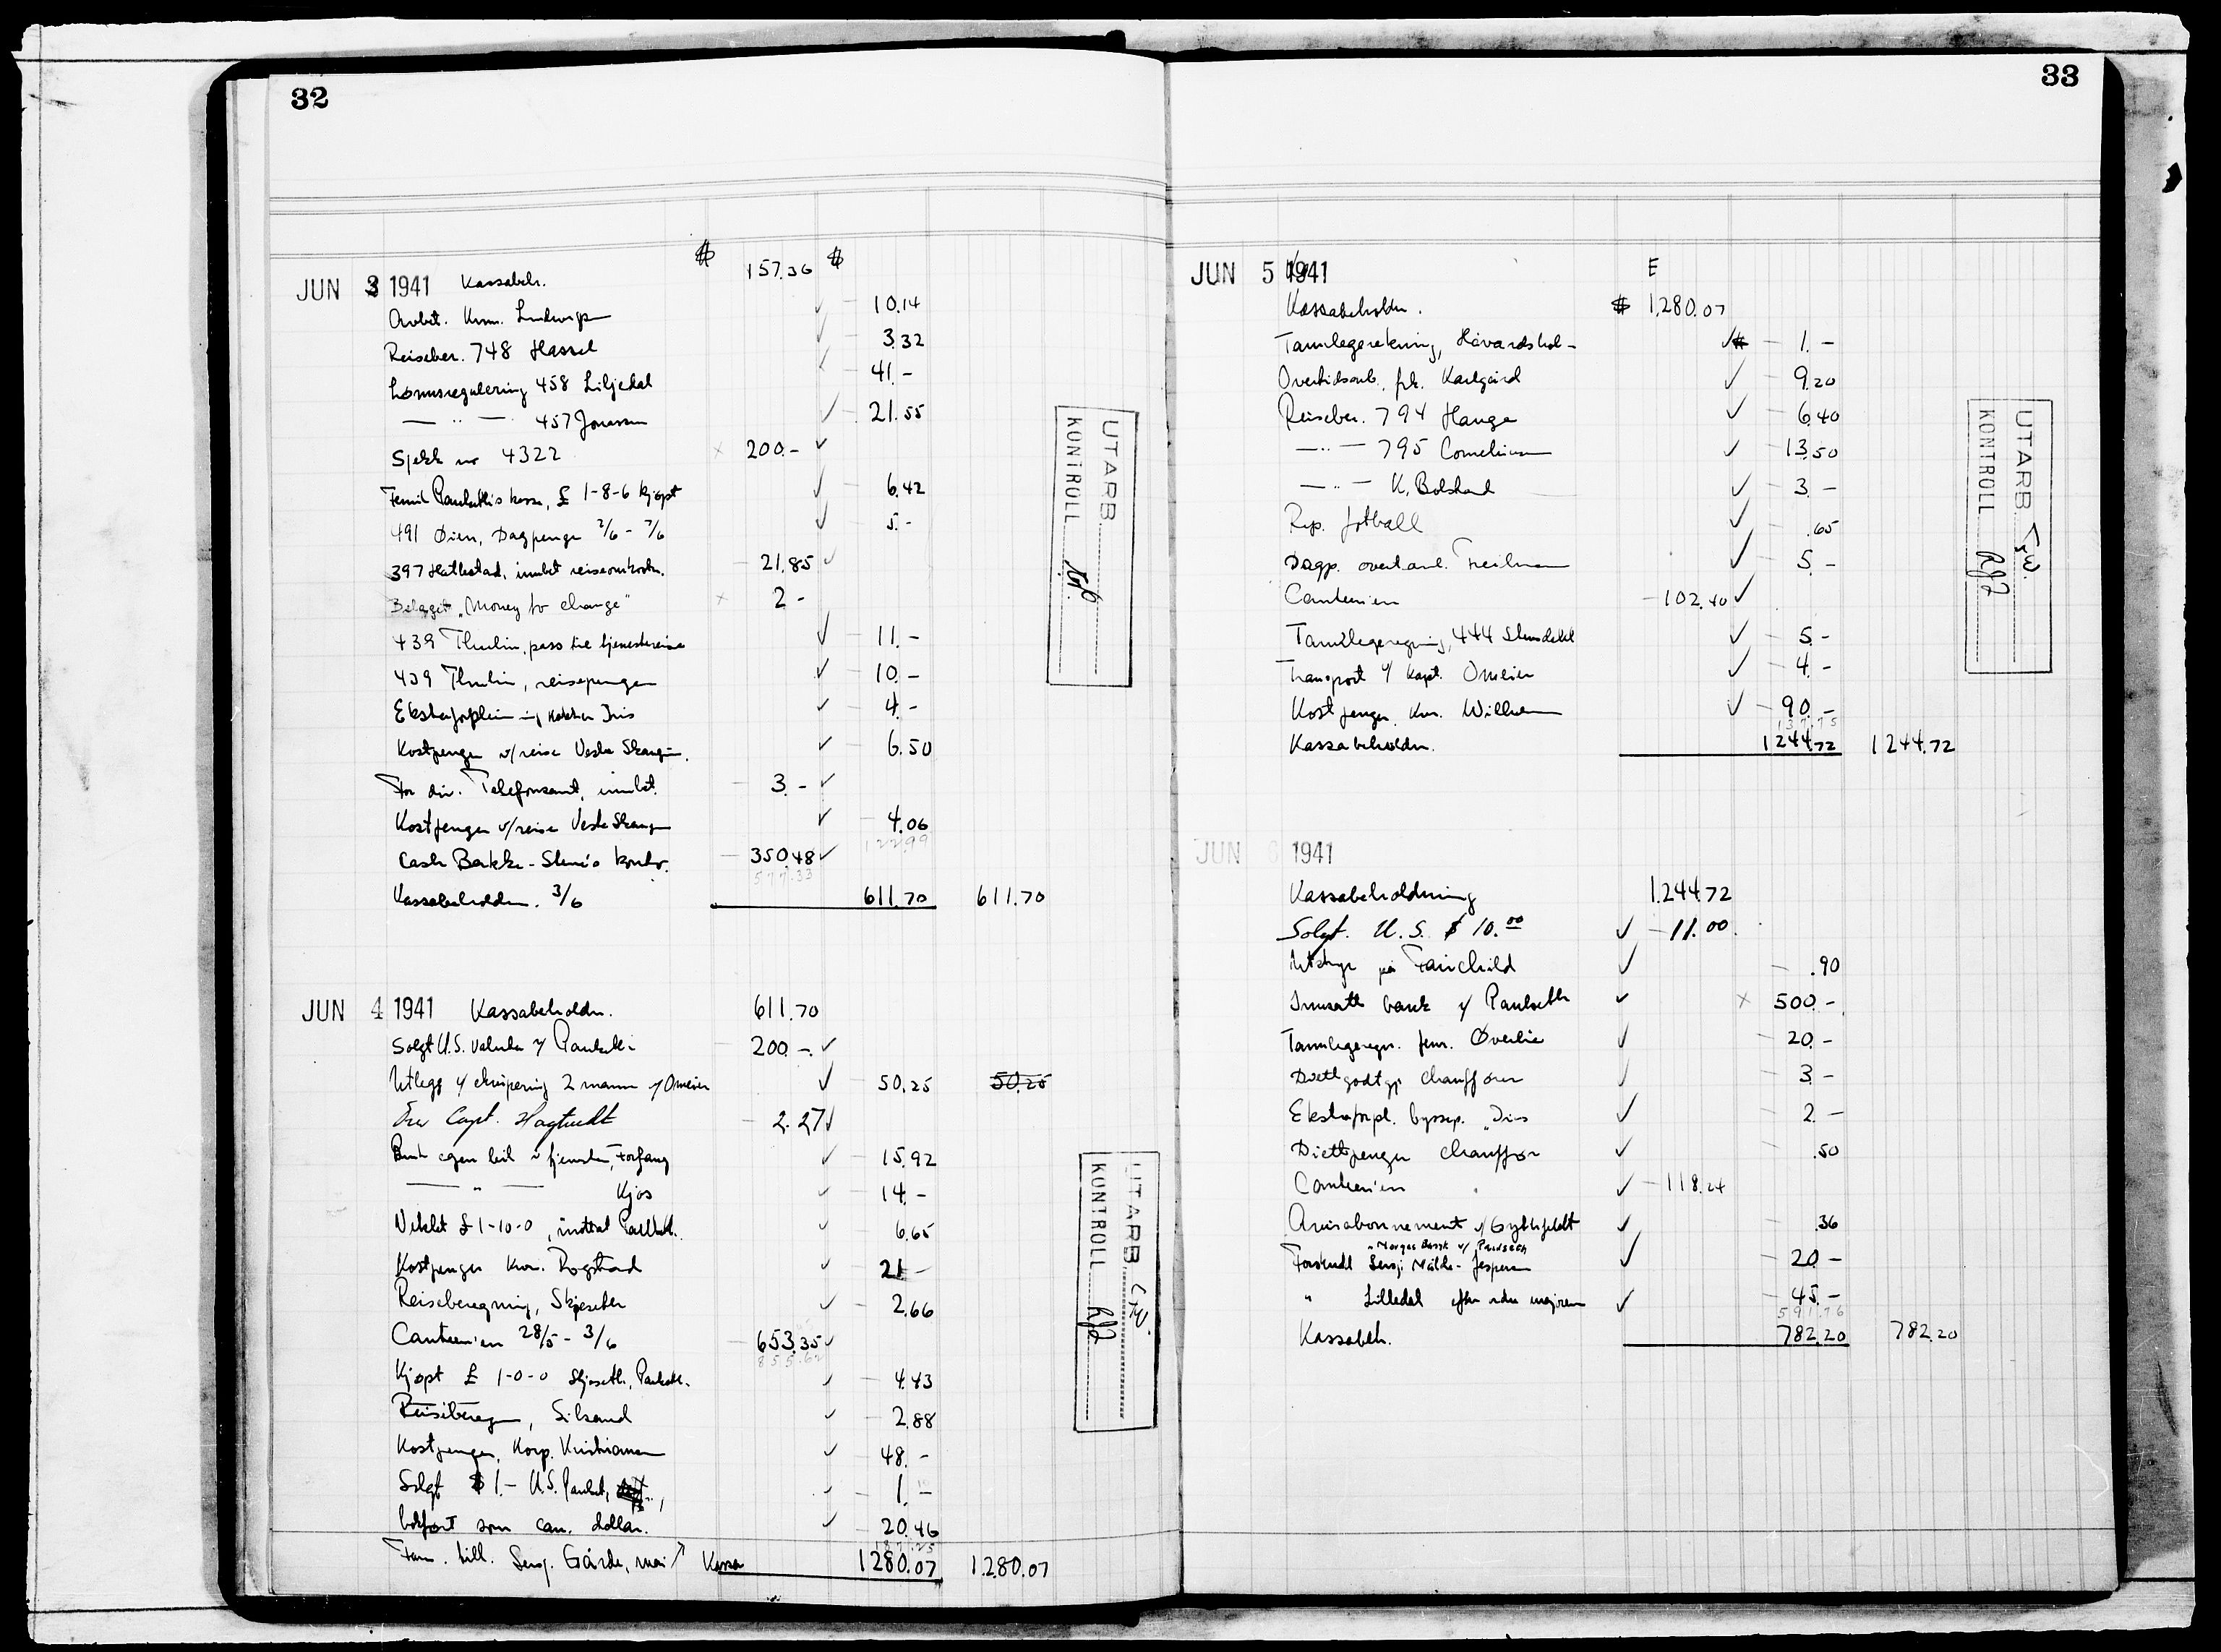 32
$ $
JUN 3 1941 Kassabeh. 157.36
Arbit. Kvm. Ludvigs 10.14
Reiseber. 748 Hassel 3.32
Lønnsregulering 458 Liljedal 41.-
— " — 457 Jonassen 21.55
Sjekk nr 4322 200.-
Paulseth's kasse, £ 1-8-6 kjøpt 6.42
491 Øien, Dagpenge 2/6 - 7/6 5.-
397 Hatlestad, innbet. reiseomkostn. 21.85
Belaget "Money to change" 2 -
439 Thulin, pass til tjenestereise 11.-
439 Thulin, reisepenger 10.-
Ekstraforplein Iris 4.-
Kostpenge v/reise Vesle Skaugum. 6.50
for div. Telefonsamt. innbet. 3.-
Kostpenger v/reise Vesle Skaugum 4.06
122.99
Cash Bakke-Stene's kontor. 350.48
577.33
Kassabeholdn. 3/6 611.70 611.70
JUN 4 1941 Kassabeholdn. 611.70
Solgt U.S. valuta v/ Paulseth 200.-
Utlegg v/ ekvipering 2 mann v/Omeier 50.25 50.25
Capt. Hagtvedt 2.27
Bruk egen bil i tjenesten, Forfang 15.92
— " — Kjos 14.-
Vekslet £ 1-10-0, mottatt Paulseth. 6.65
Kostpenger kvm. Rogstad 21 -
Reiseberegning, Skjeseth 2.66
Canteen'en 28/5 - 3/6 653.35
855.62
Kjøpt £ 1-0-0 Skjeseth, Paulseth. 4.43
Reiseberegn, Silsand 2.88
Kostpenger, Korp. Kristiansen 48.-
Solgt $ 1.- U.S. Paulset, 1.-
bokført som can. dollar. 20.46
187.25
Fam. till. Serg. Gårde, mai Kassa 1280.07 1.280.07
UTARB
KONTROLL
UTARB
KONTROLL
33
JUN 5 1941 E
Kassabeholdn. $ 1.280.07
Tannlegerekning, Håvardshol- 1.-
Overtidsarb. frk. Karlgård 9.20
Reiseber. 794 Hauge 6.40
— " — 795 Corneliussen 13.50
— " — K. Bolstad 3.-
Rep. fotball .65
Dagp. 5.-
Canteen'en 102.40
Tannlegeregning, 444 Stensdahl 5.-
Transport v/ Kapt. Omeier 4.-
Kostpenger Kvm. Wilhelmsen 90.-
137.75
Kassabeholdn. 1244.72 1244.72
JUN 6 1941
Kassabeholdning 1.244.72
Solgt. U.S. $ 10.00 11.00
Utstyr på Fairchild .90
Innsatt bank v/ Paulseth 500.-
Tannlegeregn. fenr. Øverlie 20.-
Diettgodtgj chauffører 3.-
Ekstraforpl. byssep. "Iris 2.-
Diettpenger chauffør .50
Canteen'en 118.24
Avisabonnement v/ Gythfeldt .36
"Norges Bank v/ Paulseth
Forskudd Sersj. Mälde-Jespersen 20.-
" Lilledal efter ordre majoren 45.-
591.76
Kassabeh. 782.20 782.20
UTARB
KONTROLL